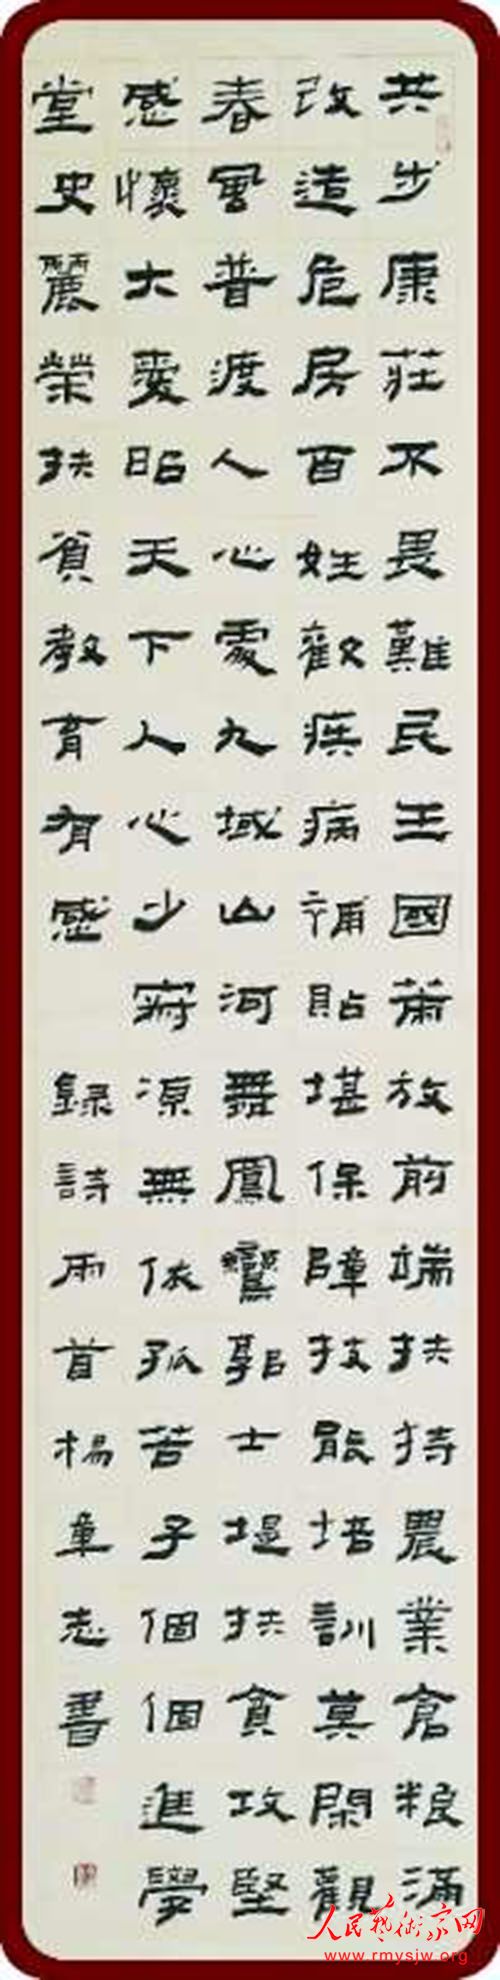 共步康莊不畏難民王國策放前端扶持農業倉粮滿
改造危房百姓歡疾病補貼堪保障技能培訓莫閑觀
春風普渡人心處九域山河舞鳳鸞郭士堤扶貧攻堅
感懷大愛昭天下人心少寂凉無依孤苦子個個進學
堂史麗榮扶貧教育有感 録詩兩首楊章志書
人民藝術家网
www.rmysjw.org